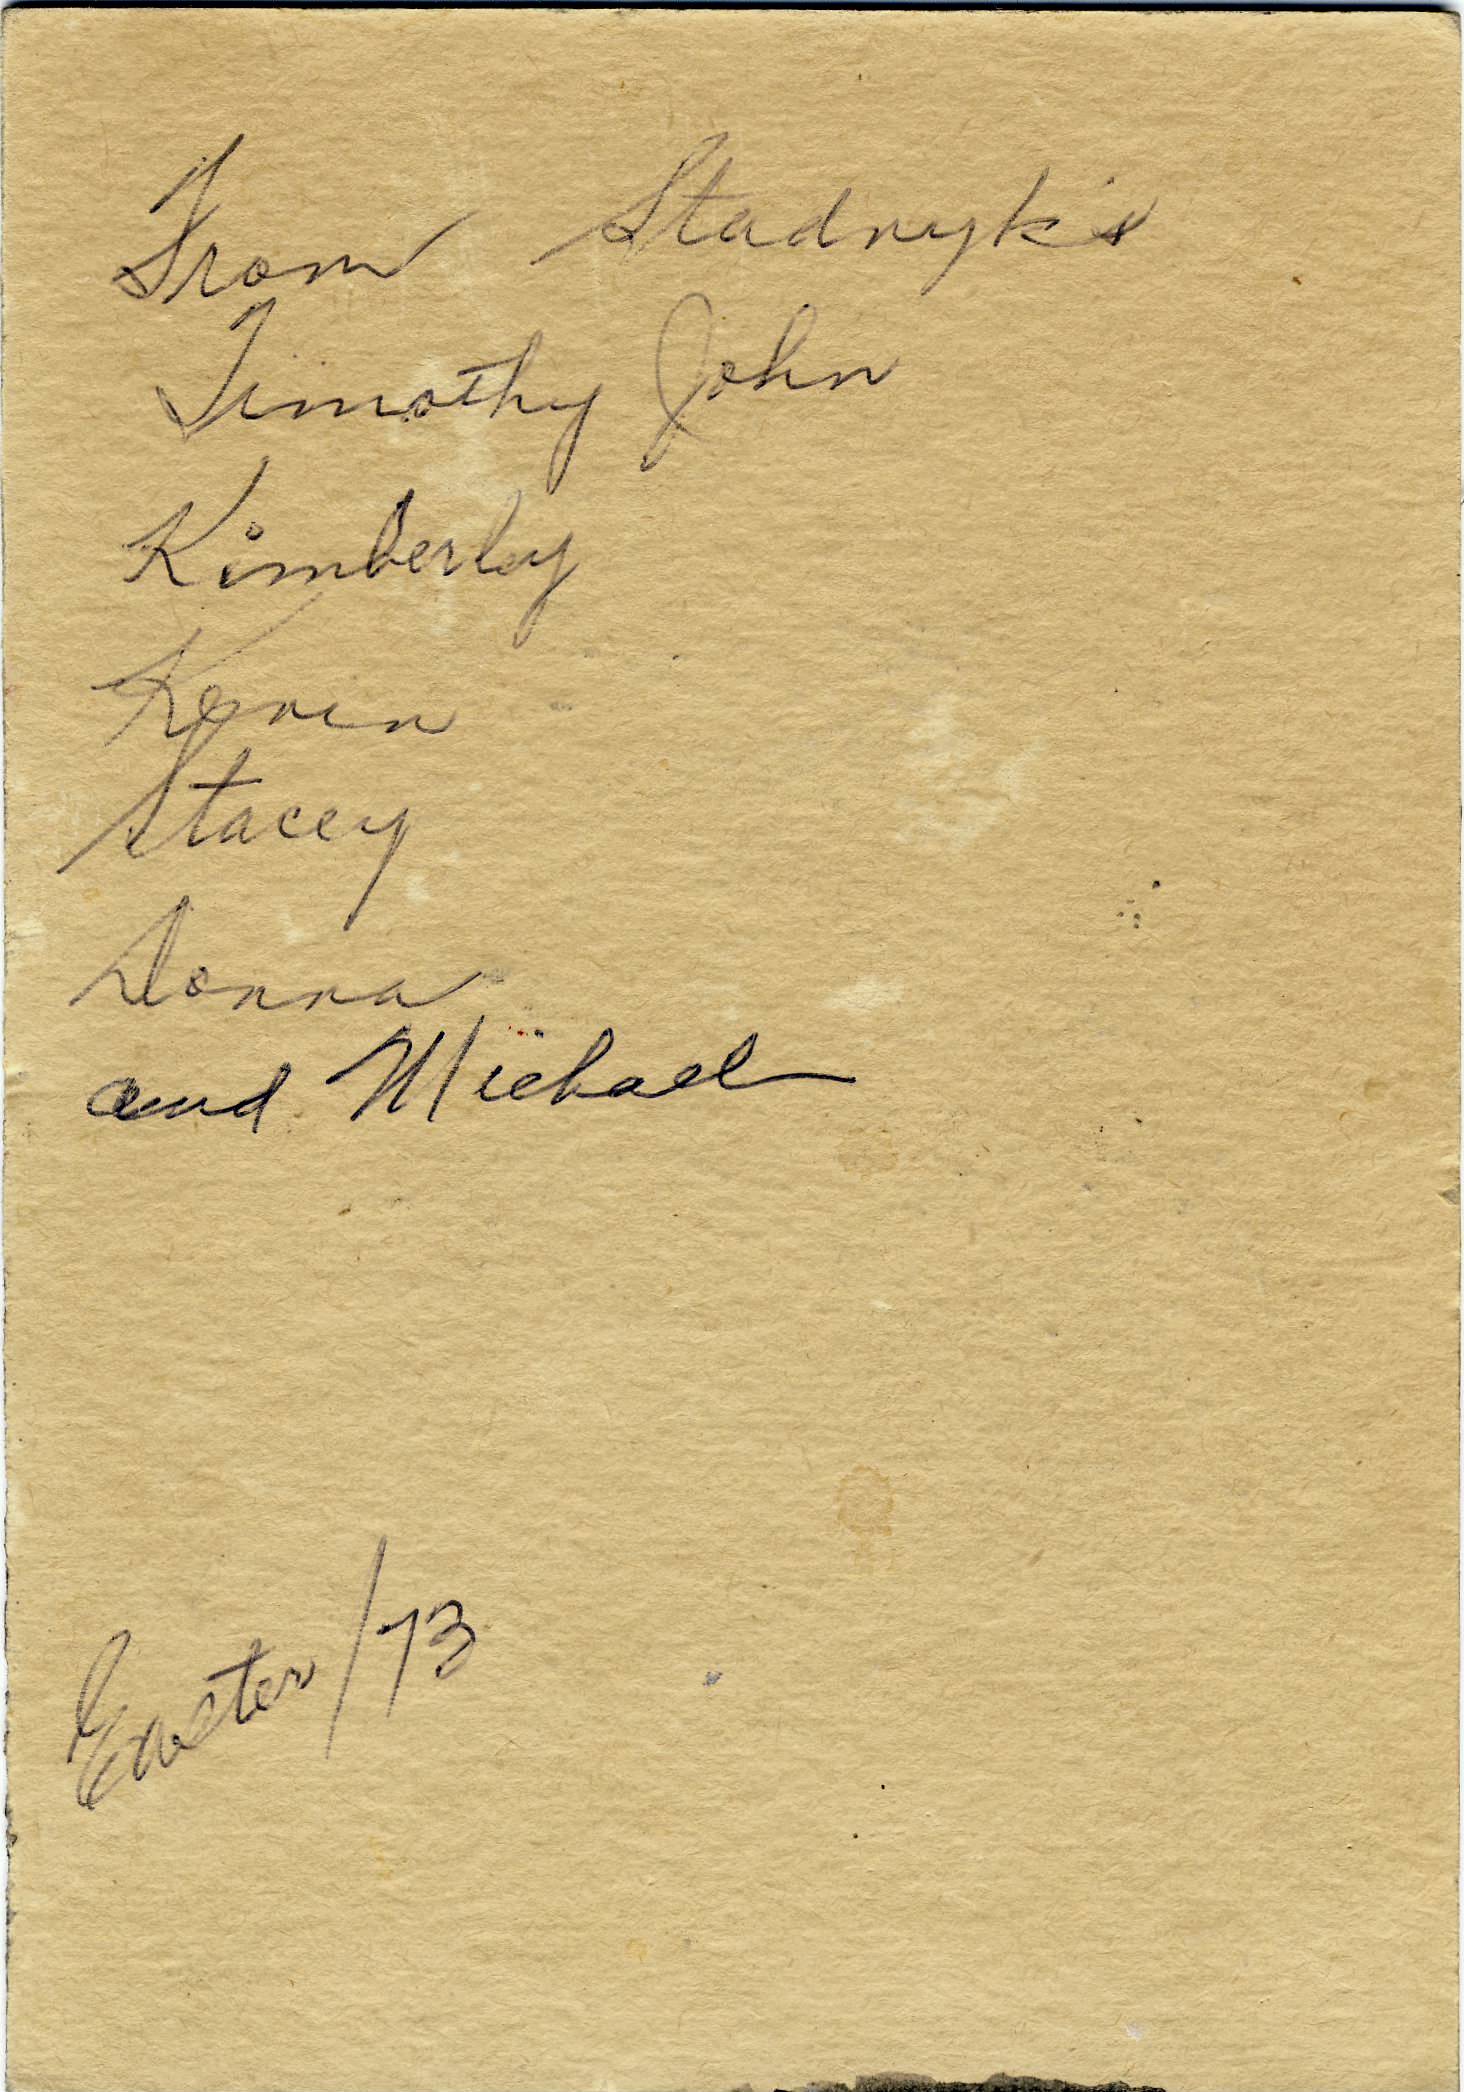 From Stadnyk's
Timothy John
Kimberley
Kevin
Stacey
Donna
and Michael
Easter/73